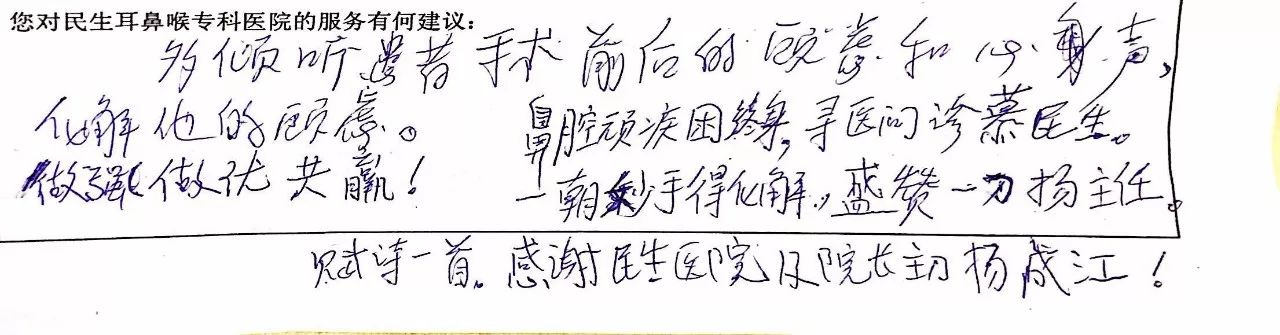 您对民生耳鼻喉专科医院的服务有何建议:
多倾听患者手术前后的顾虑和心身声,
化解他的顾虑。
做强做优共赢!
鼻腔顽疾困终身,寻医问诊慕民生。
一朝妙手得化解,盛赞一刀杨主任。
赋诗一首。感谢民生医院及院长主刀杨成江!